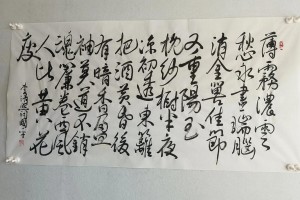 薄霧濃雲
愁永晝瑞腦
消金獸佳節
又重陽玉
枕紗櫥半夜
涼初透東籬
把酒黃昏後
有暗香盈
袖莫道不銷
魂簾卷西風
人比黃花
瘦